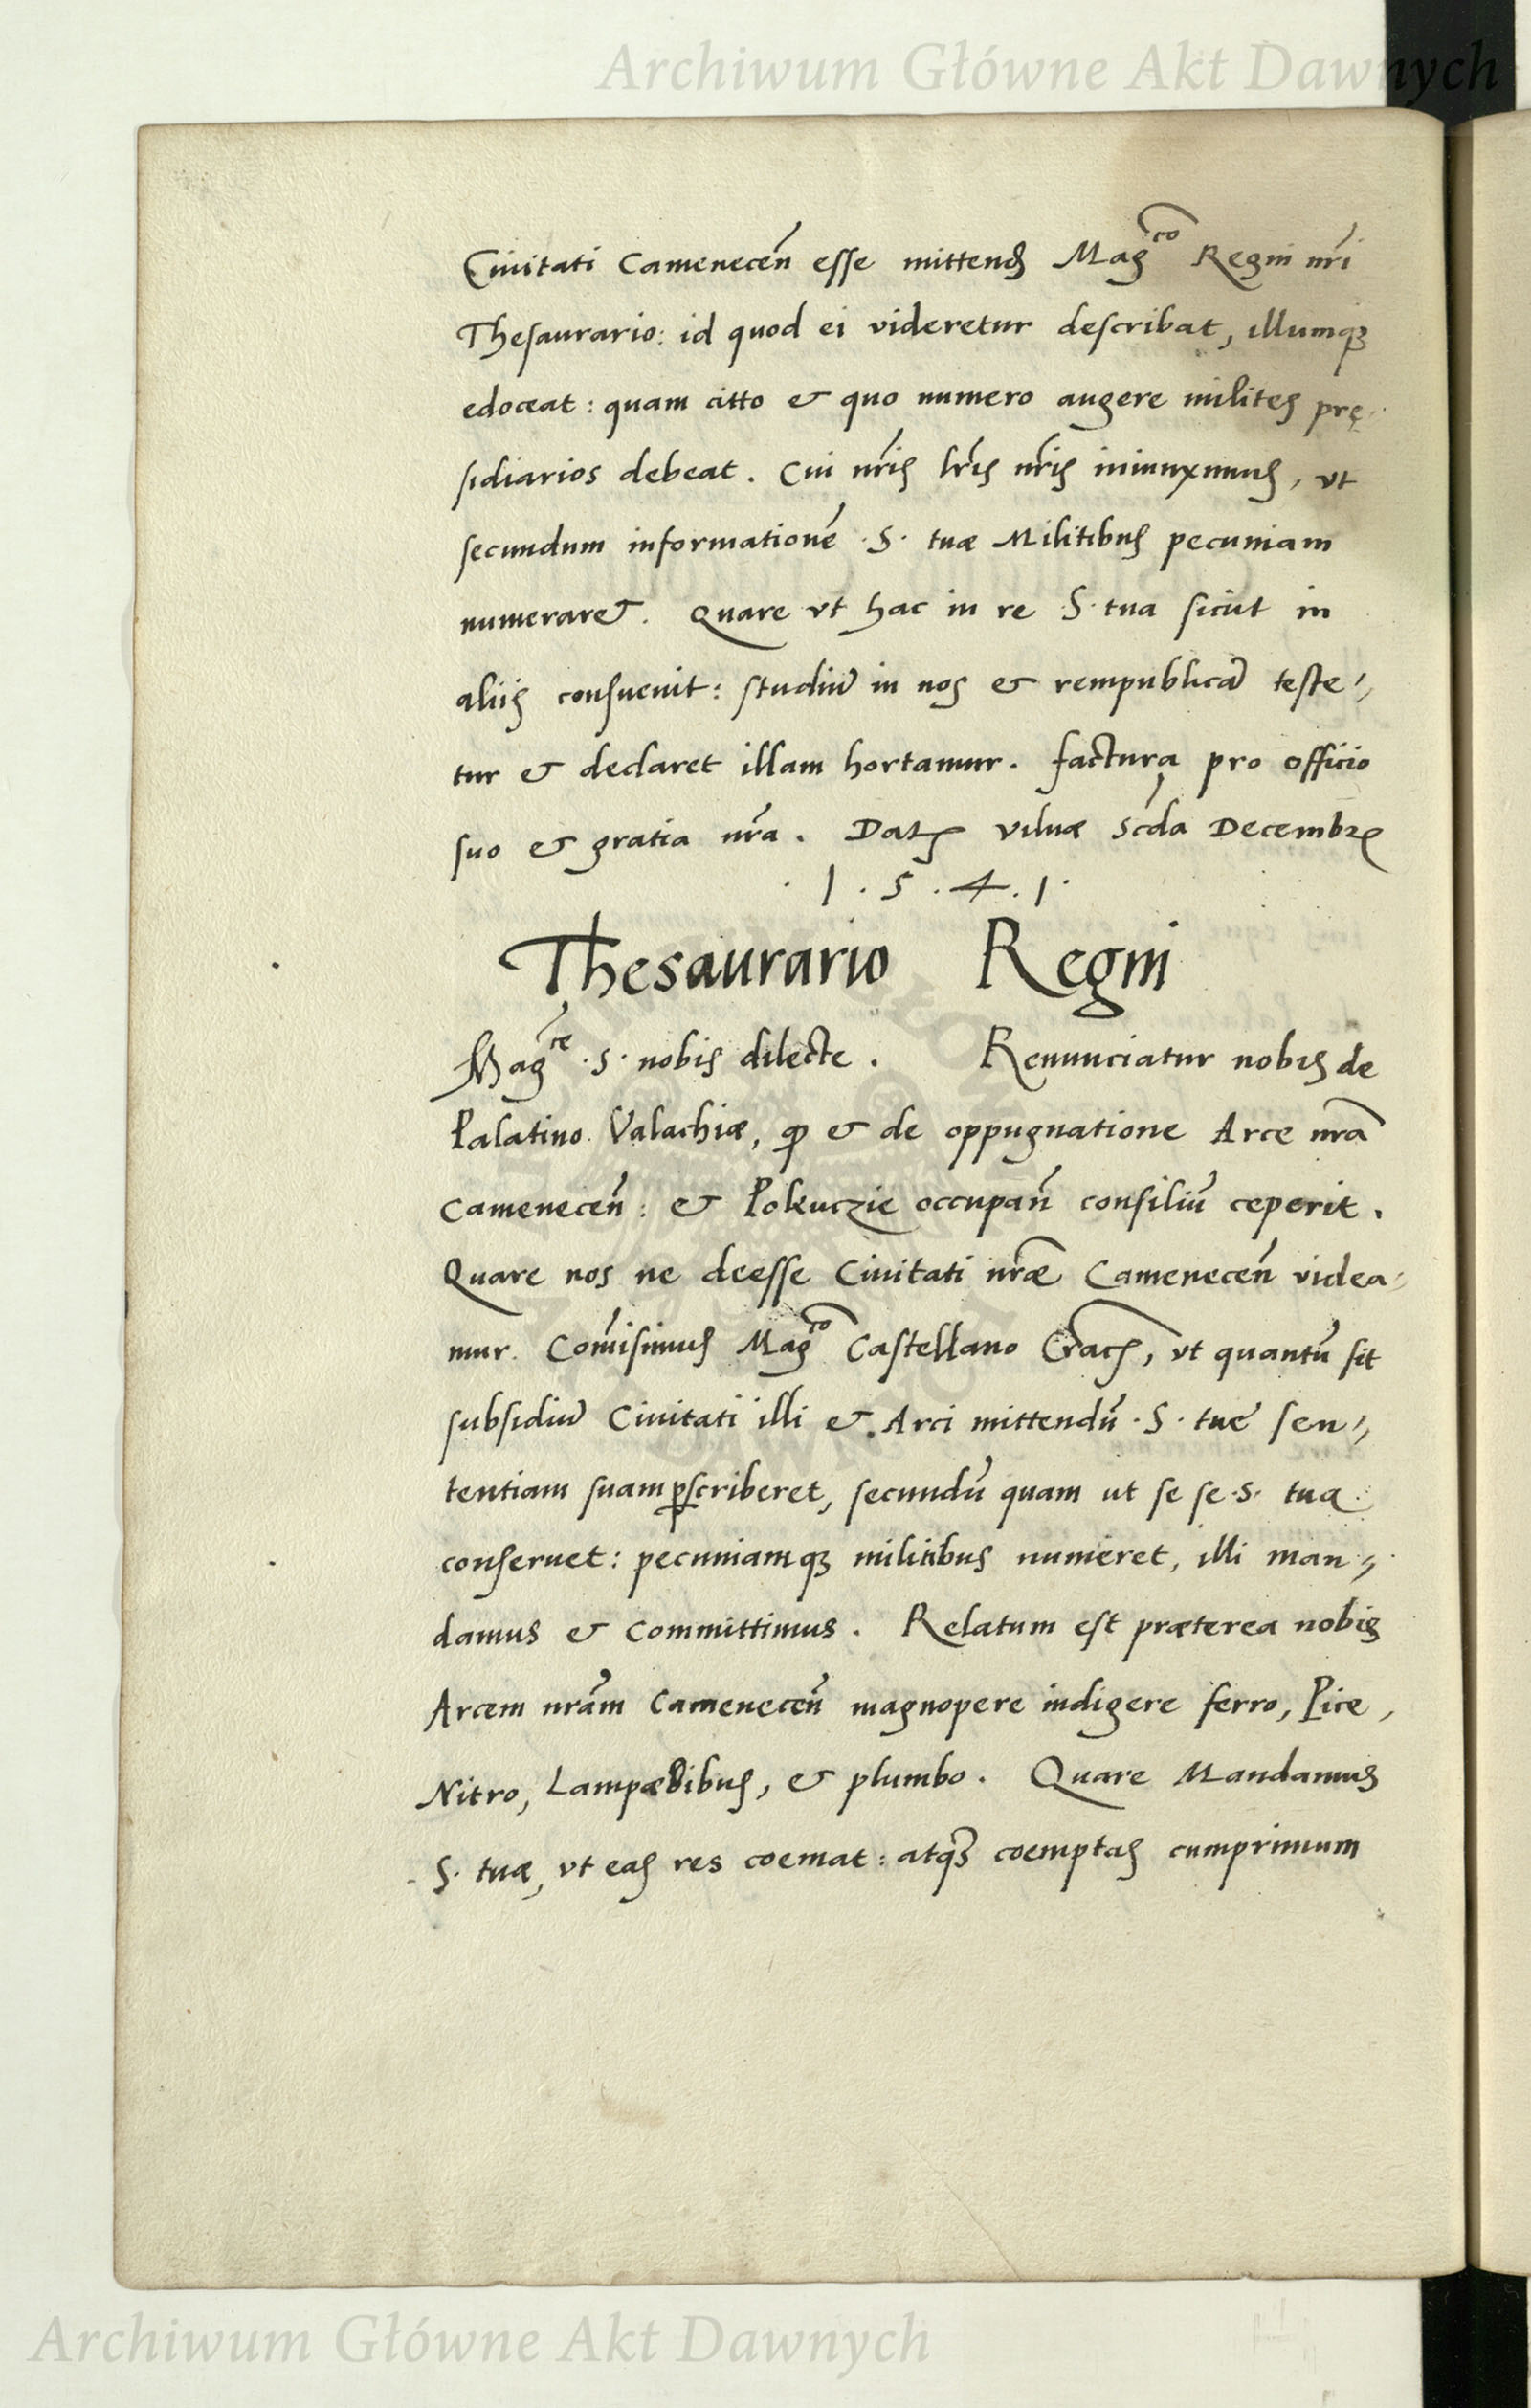 Archiwum Główne Akt Dawnych
Ciuitati Camenecen̄ esse mittend Magco Regni nr̄i
Thesaurario: id quod ei videretur describat, illumqꝫ
edoceat: quam citto & quo numero augere milites prę-
sidiarios debeat. Cui nr̄is lr̄is nr̄is iniunximus, vt
secundum informationē .S. tuæ Militibus pecuniam
numeraret. Quare vt hac in re .S. tua sicut in
aliis consueuit: studiū in nos & rempublicā teste-
tur & declaret illam hortamur. factura pro officio
suo & gratia nr̄a. Dat vilnæ Scd̄a Decembr
.1.5.4.1.
Thesaurario Regni
Magce .S. nobis dilecte. Renunciatur nobis de
Palatino Valachiæ, ꝙ & de oppugnatione Arce nrā
Camenecen̄: & Pokuczie occupan̄ consiliū ceperit.
Quare nos ne deesse Ciuitati nr̄æ Camenecen̄ videa-
mur. Com̄isimus Magco Castellano Crac, vt quantū sit
subsidiū Ciuitati illi & Arci mittendū .S. tuę sen-
tentiam suam ꝑscriberet, secundū quam ut se se .S. tua
conseruet: pecuniamqꝫ militibus numeret, illi man-
damus & committimus. Relatum est præterea nobis
Arcem nrām Camenecen̄ magnopere indigere ferro, Pice,
Nitro, Lampædibus, & plumbo. Quare Mandamus
S. tuæ, vt eas res coemat: atqꝫ coemptas cumprimum
Archiwum Główne Akt Dawnych